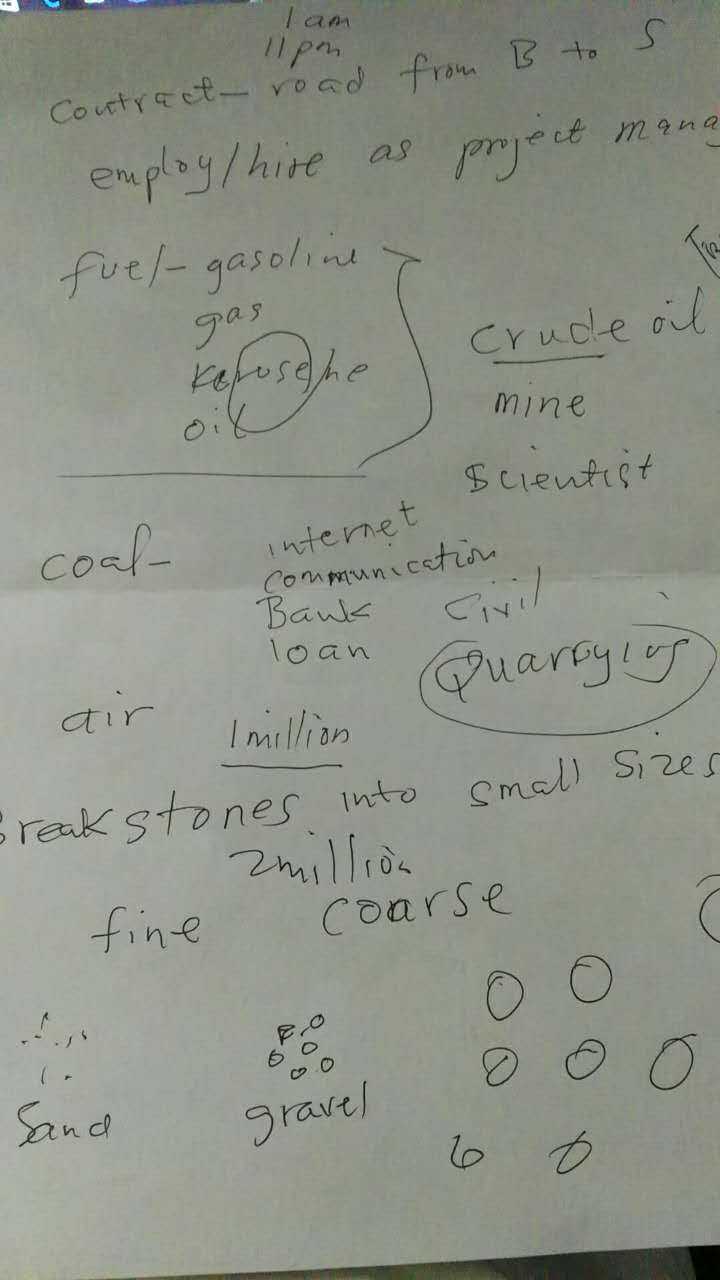 1 am
11 pm
contract- road from B to S
employ/hire as project mana
fuel- gasoline
gas
kerosene
oil
crude oil
mine
scientist
coal-
internet
communication
Bank
loan
civil
Quarrying
air
1 million
Break stones into small sizes
2 million
fine coarse
sand gravel